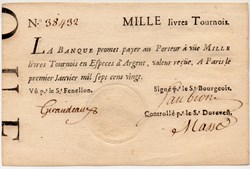 No 38432 MILLE livres Tournois.
LA BANQUE promet payer au Porteur à vüe MILLE
livres Tournois en Especes d'Argent, valeur reçüe, A Paris le
premier Janvier mil sept cens vingt.
Vû pr. le Sr. Fenellon. Signé pr. le Sr. Bourgeois.
Giraudeau
Controllé pr. le Sr. Durevest.